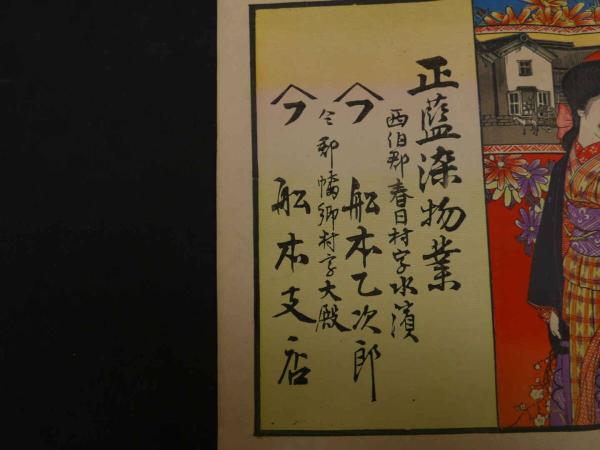 正藍染物業
西伯郡春日村字水濱
船本乙次郎
仝郡幡郷村字大殿
船本支店